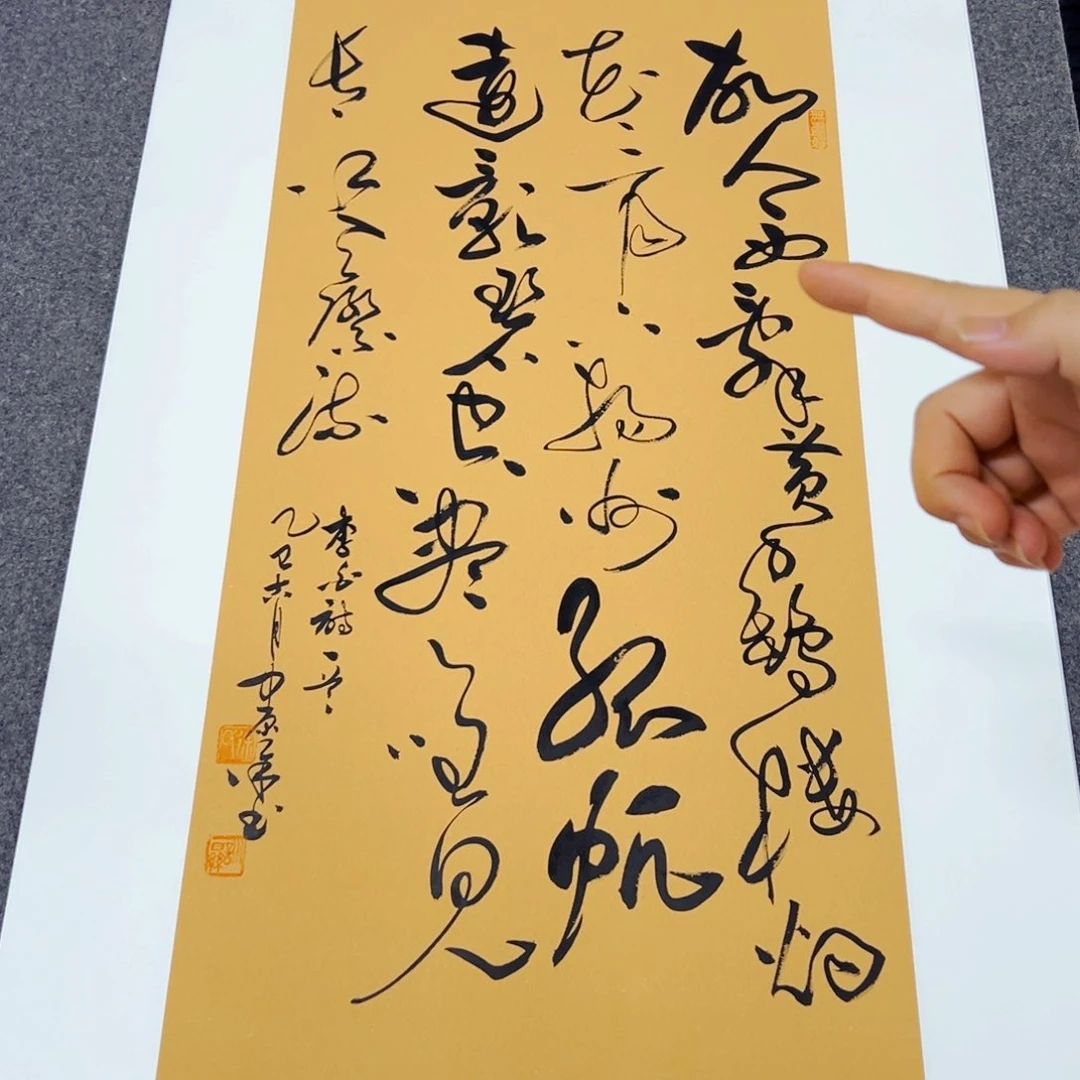 故人西辭黃鶴樓烟
花三月下揚州孤帆
遠影碧空盡唯見
長江天際流
李白詩一首
乙巳六月中原书